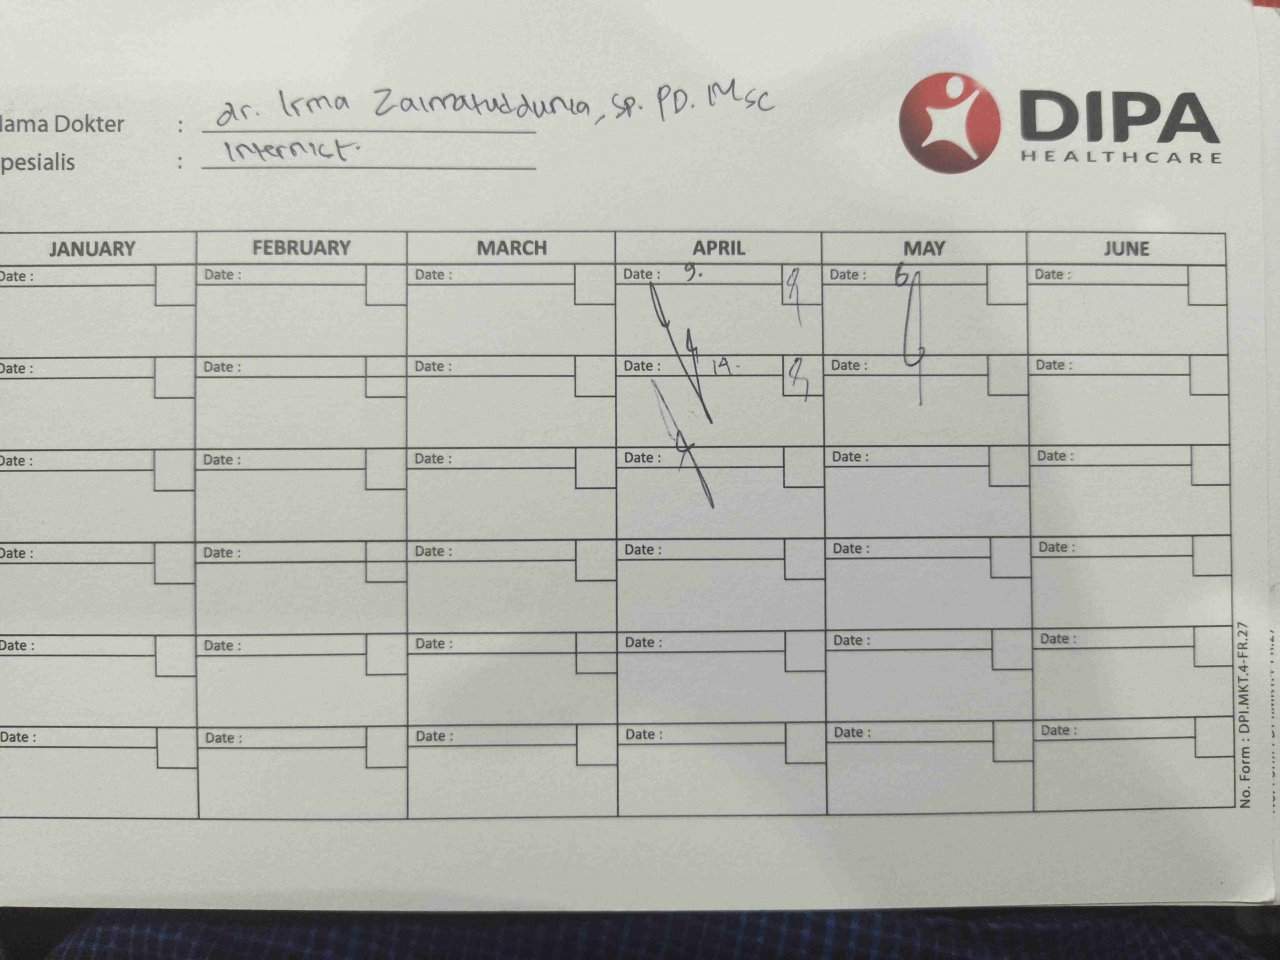 dr. Irma Zaimatuddunia, Sp. PD. MSc
DIPA
HEALTHCARE
ama Dokter :
pesialis : Internist.
JANUARY FEBRUARY MARCH APRIL MAY JUNE
Date : Date : Date : Date : 9. Date : 6 Date :
Date : Date : Date : Date : 14. Date : Date :
Date : Date : Date : Date : Date : Date :
Date : Date : Date : Date : Date : Date :
Date : Date : Date : Date : Date : Date :
Date : Date : Date : Date : Date : Date :
No. Form : DPI.MKT.4-FR.27